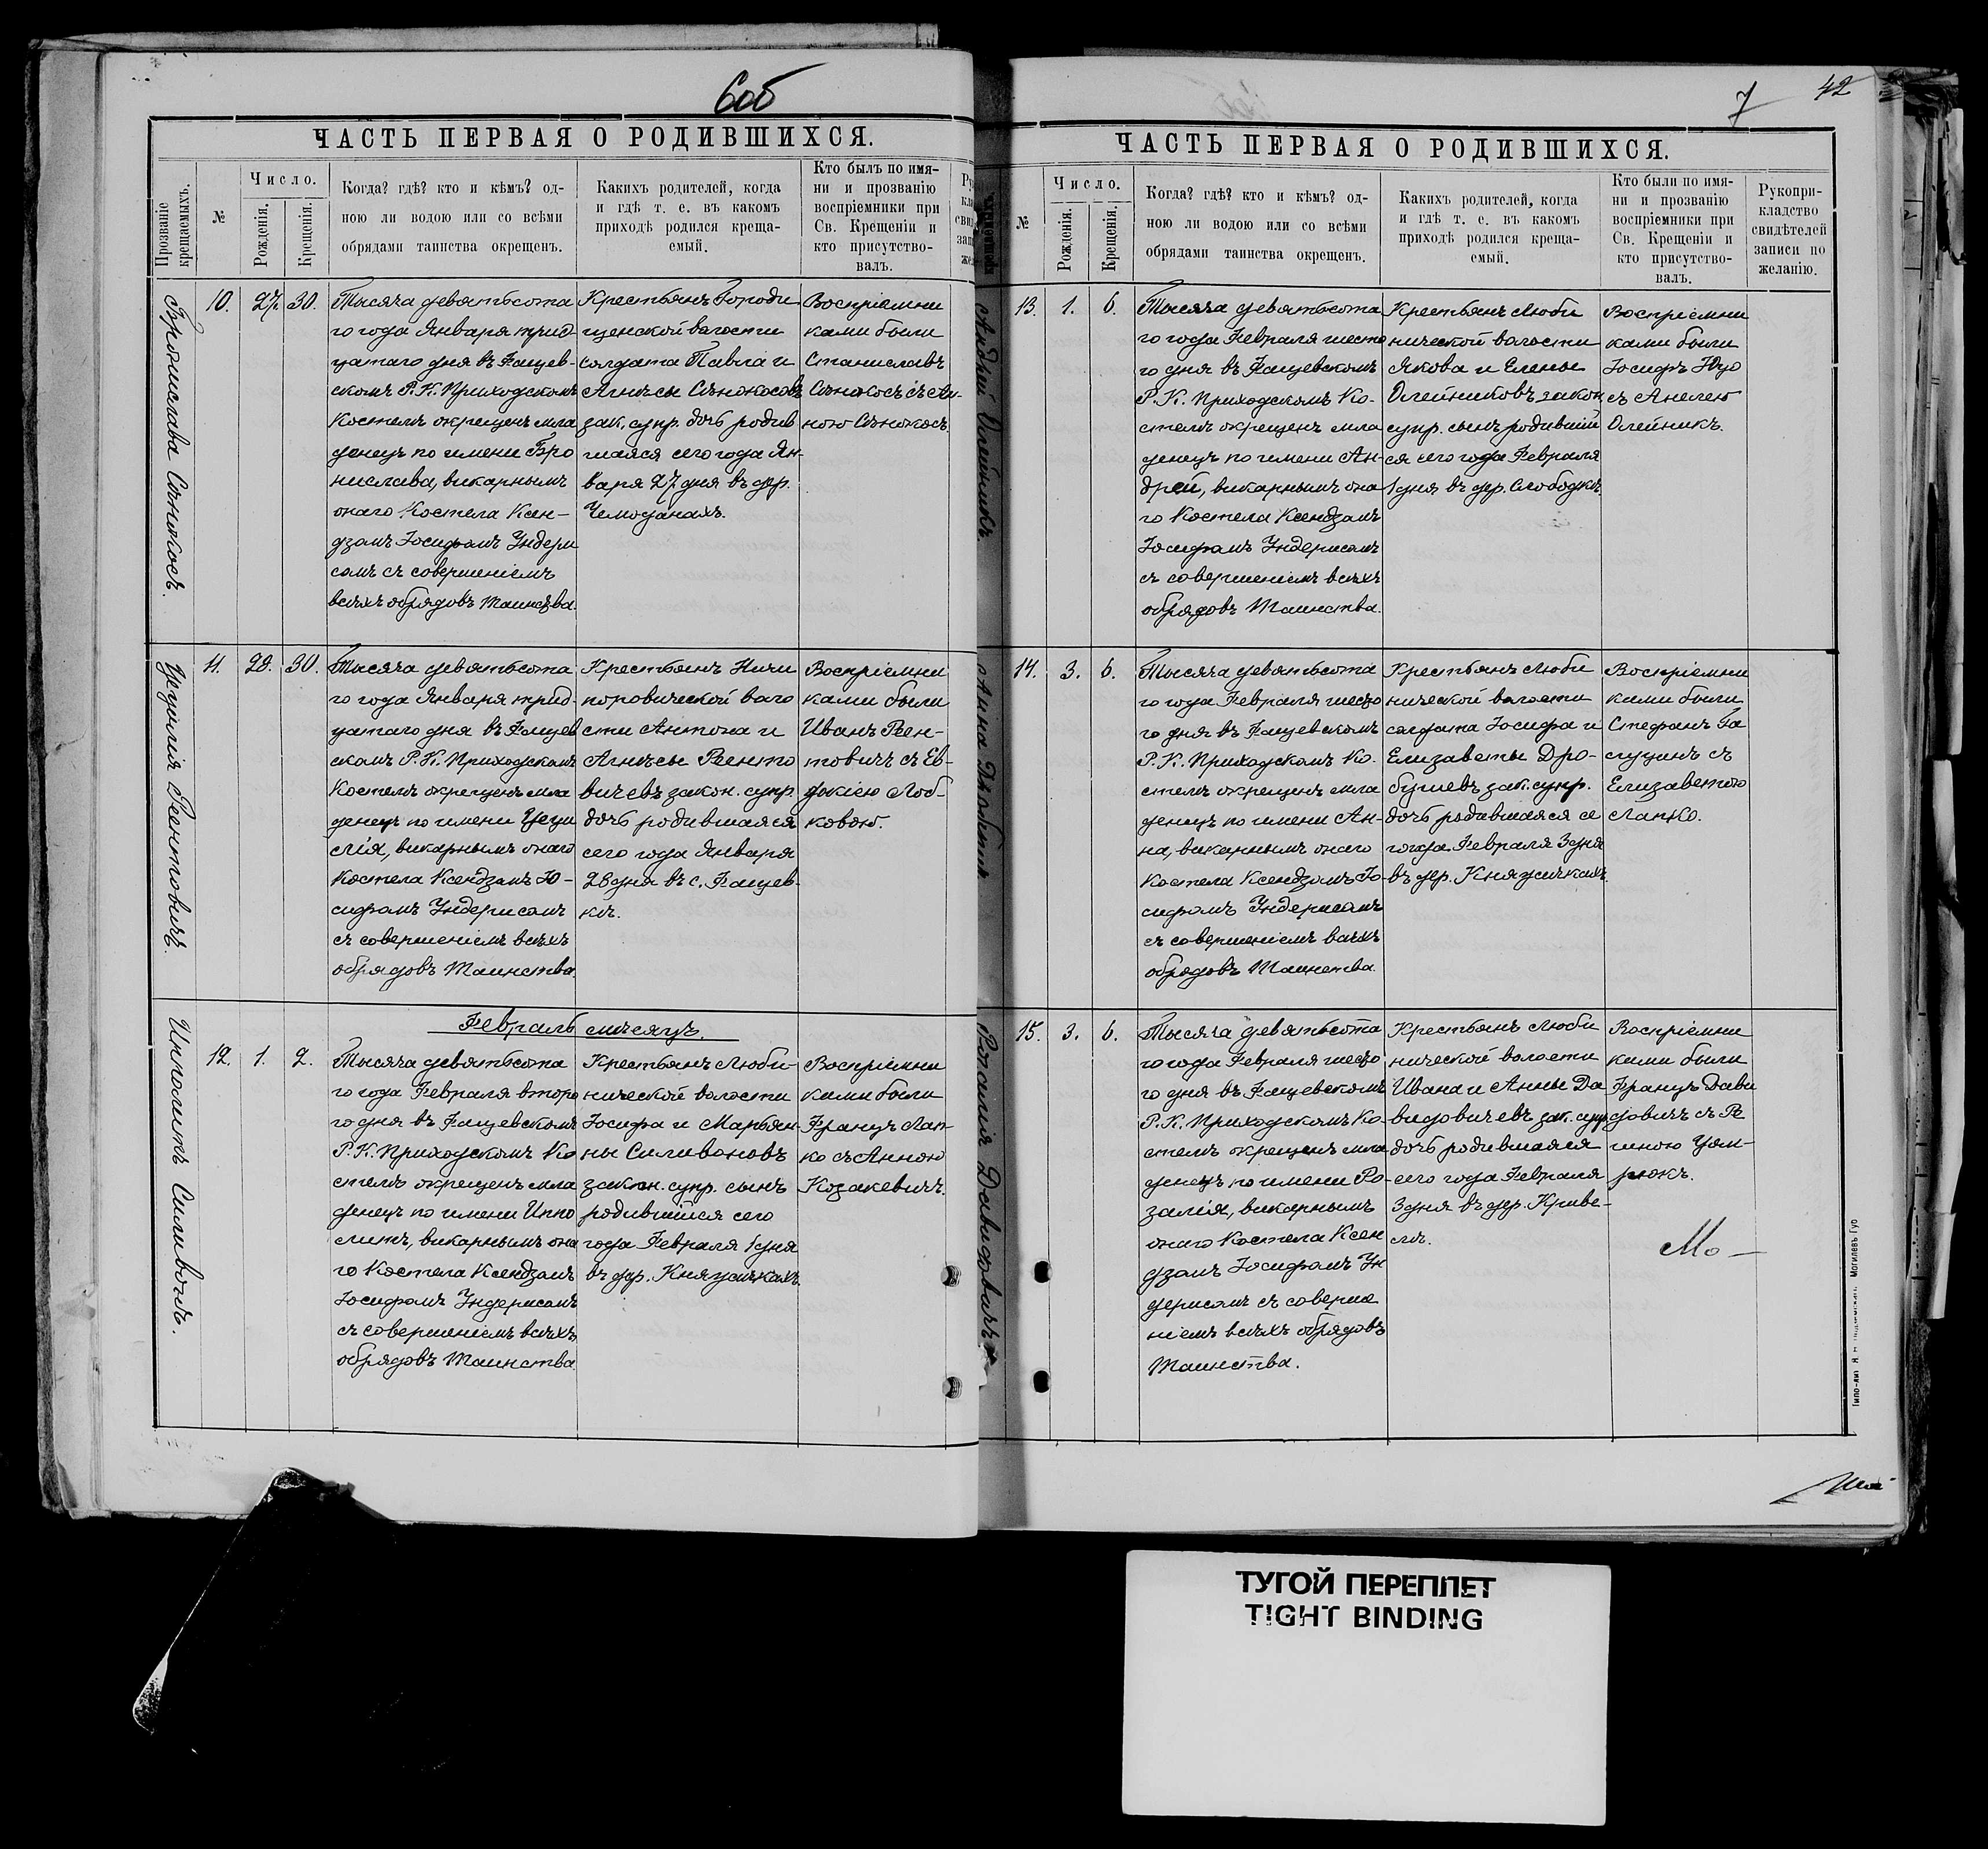 6об
ЧАСТЬ ПЕРВАЯ О РОДИВШИХСЯ.
Прозваніе крещаемыхъ.
№
Число.
Рожденія.
Крещенія.
Когда? гдѣ? кто и кѣмъ? од-
ною ли водою или со всѣми
обрядами таинства окрещенъ.
Какихъ родителей, когда
и гдѣ т. е. въ какомъ
приходѣ родился креща-
емый.
Кто былъ по имя-
ни и прозванію
воспріемники при
Св. Крещеніи и
кто присутство-
валъ.
Бронислава Сѣнокосъ.
10.
27.
30.
Тысяча девятьсота
го года Января трид
цатаго дня въ Фащев-
скомъ Р.К. Приходскомъ
Костелѣ окрещенъ мла
денецъ по имени Бро
нислава, викарнымъ
онаго Костела Ксен-
дзомъ Іосифомъ Ундери
сомъ съ совершеніемъ
всѣхъ обрядовъ Таинства.
Крестьянъ Городи
щенской волости
солдата Павла и
Агнѣсы Сѣнокосовъ
зак. супр. дочь родив
шаяся сего года Ян-
варя 27 дня въ дер.
Чемоданахъ.
Воспріемни
ками были
Станиславъ
Сѣнокосъ съ Ан-
ною Сѣнокосъ.
Цецилія Рентовичъ.
11.
28.
30.
Тысяча девятьсота
го года Января трид-
цатаго дня въ Фащев
скомъ Р.К. Приходскомъ
Костелѣ окрещенъ мла
денецъ по имени Цеци
лія, викарнымъ онаго
Костела Ксендзомъ Іо-
сифомъ Ундерисомъ
съ совершеніемъ всѣхъ
обрядовъ Таинства.
Крестьянъ Ничи
поровической воло
сти Антона и
Агнѣсы Ренто
вичевъ закон. супр.
дочь родившаяся
сего года Января
28 дня въ с. Фащев-
кѣ.
Воспріемни
ками были
Иванъ Рен-
товичъ съ Ев-
докіею Лоб-
ковою.
Февраль мѣсяцъ.
Ипполитъ Силивонъ.
12.
1.
2.
Тысяча девятьсота
го года Февраля второ
го дня въ Фащевскомъ
Р.К. Приходскомъ Ко
стелѣ окрещенъ мла
денецъ по имени Иппо
литъ, викарнымъ она
го Костела Ксендзомъ
Іосифомъ Ундерисомъ
съ совершеніемъ всѣхъ
обрядовъ Таинства
Крестьянъ Люби-
нической волости
Іосифа и Марьян-
ны Силивоновъ
закон. супр. сынъ
родившійся сего
года Февраля 1 дня
въ дер. Княжичкахъ.
Воспріемни
ками были
Францъ Лап-
ко съ Анною
Козакевичъ.
7
42
ЧАСТЬ ПЕРВАЯ О РОДИВШИХСЯ.
№
Число.
Рожденія.
Крещенія.
Когда? гдѣ? кто и кѣмъ? од-
ною ли водою или со всѣми
обрядами таинства окрещенъ.
Какихъ родителей, когда
и гдѣ т. е. въ какомъ
приходѣ родился креща-
емый.
Кто были по имя-
ни и прозванію
воспріемники при
Св. Крещеніи и
кто присутство-
валъ.
Рукопри-
кладство
свидѣтелей
записи по
желанію.
Андрей Олейникъ
13.
1.
6.
Тысяча девятьсота
го года Февраля шесто
го дня въ Фащевскомъ
Р.К. Приходскомъ Ко-
стелѣ окрещенъ мла
денецъ по имени Ан-
дрей, викарнымъ она
го Костела Ксендзомъ
Іосифомъ Ундерисомъ
съ совершеніемъ всѣхъ
обрядовъ Таинства.
Крестьянъ Люби
нической волости
Якова и Елены
Олейниковъ закон
супр. сынъ родившій
ся сего года Февраля
1 дня въ дер. Слободкѣ.
Воспріемни
ками были
Іосифъ
съ Анелею
Олейникъ.
Анна
14.
3.
6.
Тысяча девятьсота
го года Февраля шесто
го дня въ Фащевскомъ
Р.К. Приходскомъ Ко-
стелѣ окрещенъ мла
денецъ по имени Ан-
на, викарнымъ онаго
Костела Ксендзомъ Іо-
сифомъ Ундерисомъ
съ совершеніемъ всѣхъ
обрядовъ Таинства.
Крестьянъ Люби
нической волости
солдата Іосифа и
Елизаветы Дро-
бушевъ зак. супр.
дочь родившаяся се
го года Февраля 3 дня
въ дер. Княжичкахъ.
Воспріемни
ками были
Стефанъ Га
съ
Елизаветою
Лапко.
Розалія Давидовичъ
15.
3.
6.
Тысяча девятьсота
го года Февраля шесто
го дня въ Фащевскомъ
Р.К. Приходскомъ Ко-
стелѣ окрещенъ мла
денецъ по имени Ро-
залія, викарнымъ
онаго Костела Ксен
дзомъ Іосифомъ Ун
дерисомъ съ соверше
ніемъ всѣхъ обрядовъ
Таинства.
Крестьянъ Люби
нической волости
Ивана и Анны Да
видовичевъ зак. супр
дочь родившаяся
сего года Февраля
3 дня въ дер. Криве-
лѣ.
Воспріемни
ками были
Францъ Дави
довичъ съ Ре
гиною Цим-
рюкъ.
Мо-
Могилевъ Губ
ТУГОЙ ПЕРЕПЛЕТ
TIGHT BINDING